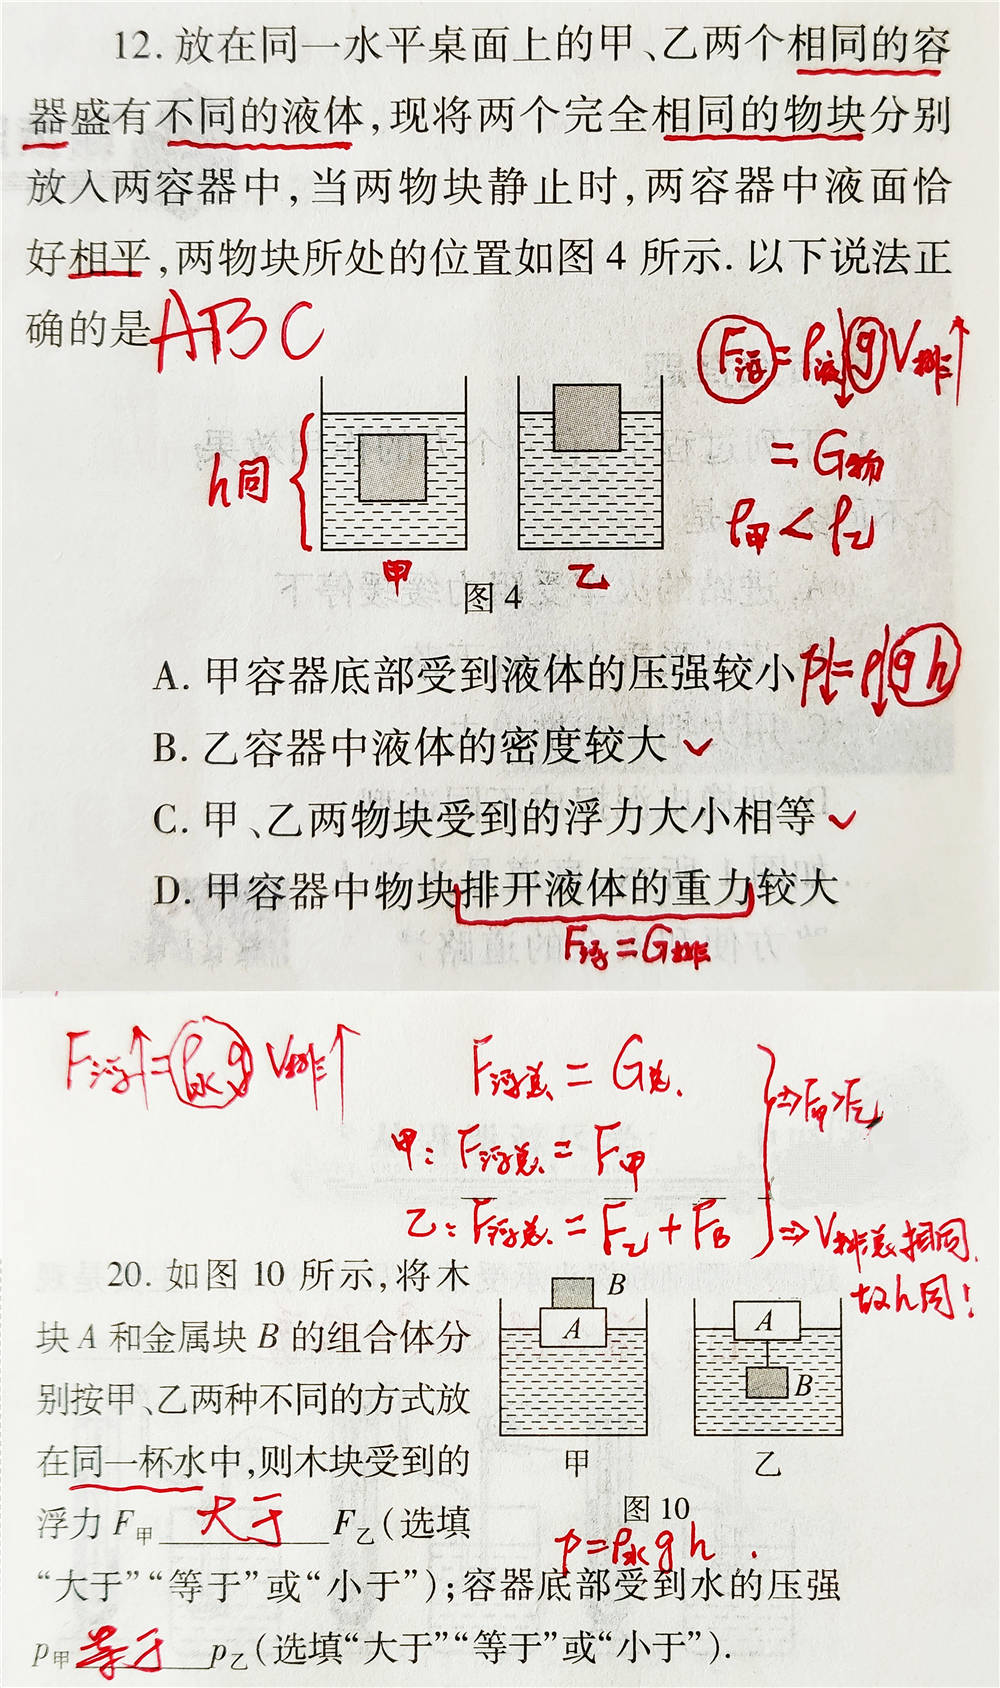 12. 放在同一水平桌面上的甲、乙两个相同的容
器盛有不同的液体,现将两个完全相同的物块分别
放入两容器中,当两物块静止时,两容器中液面恰
好相平,两物块所处的位置如图 4 所示. 以下说法正
确的是 ABC
F浮 = ρ液↓ g V排↑
= G物
ρ甲 < ρ乙
h同
甲 乙
图 4
A. 甲容器底部受到液体的压强较小 p↓ = ρ↓ g h
B. 乙容器中液体的密度较大 ✓
C. 甲、乙两物块受到的浮力大小相等 ✓
D. 甲容器中物块排开液体的重力较大
F浮 = G排
F浮↑ = ρ水 g V排↑
F浮总 = G总.
甲: F浮总 = F甲
乙: F浮总 = F乙 + FB
⇒ F甲 > F乙
⇒ V排总相同.
故h同!
20. 如图 10 所示,将木
块 A 和金属块 B 的组合体分
别按甲、乙两种不同的方式放
在同一杯水中,则木块受到的
浮力 F甲 大于 F乙(选填
B
A
甲
A
B
乙
图 10
p = ρ水 g h .
“大于”“等于”或“小于”);容器底部受到水的压强
p甲 等于 p乙(选填“大于”“等于”或“小于”).